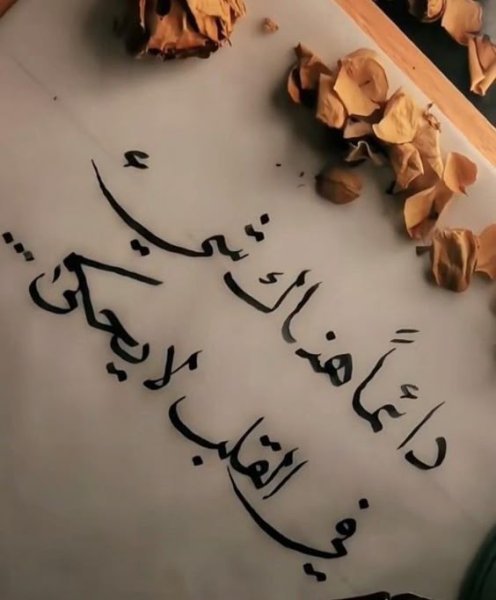 دائماً هناك شيءٌ
في القلب لا يحكىٰ...